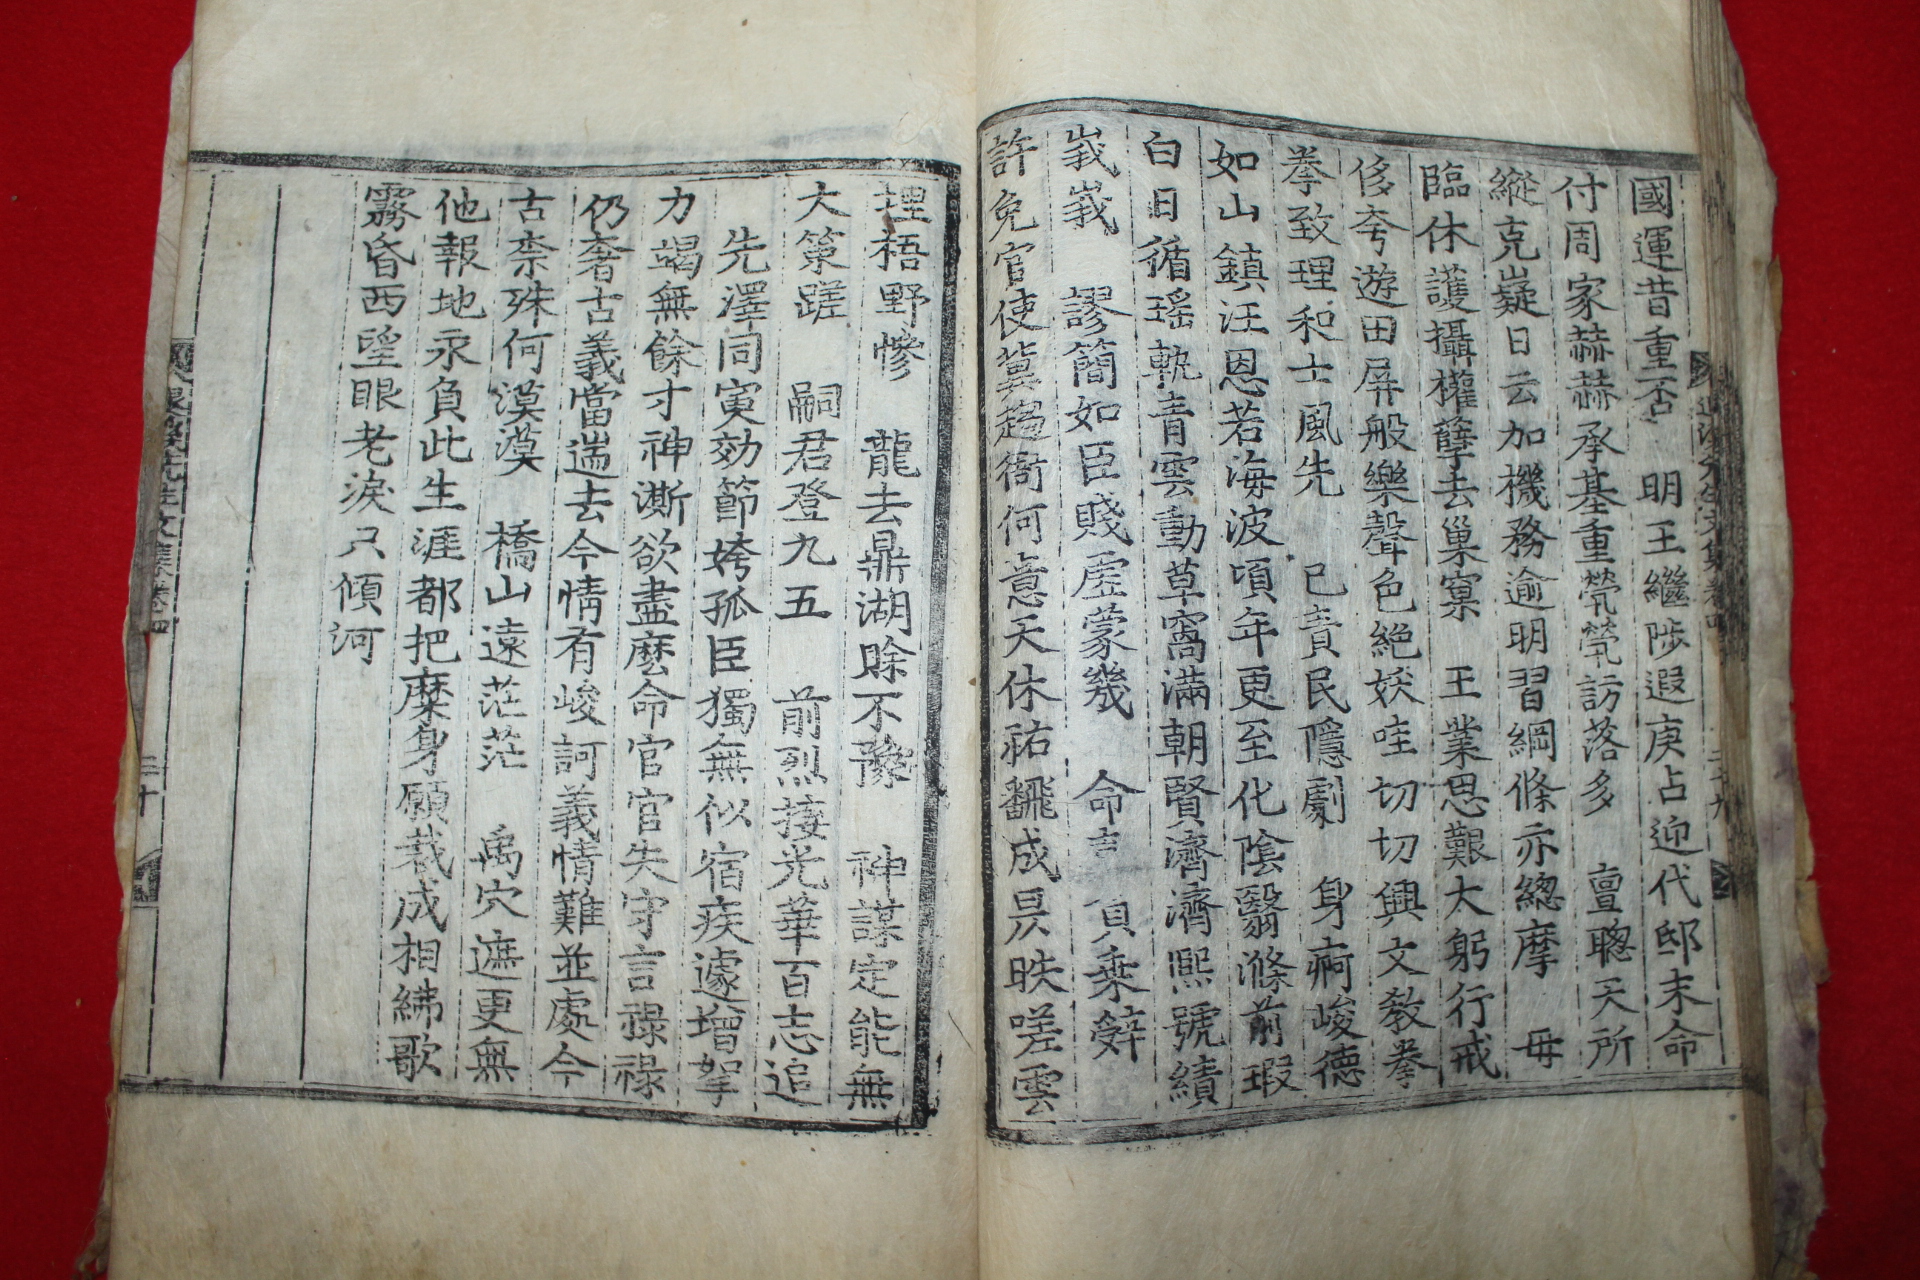 國運昔重否 明王繼陟遐庚占迎代邸末命
付周家赫赫承基重煢煢訪落多 亶聰天所
縱克嶷日云加機務逾明習綱條亦總摩 毋
臨休護攝權孽去巢窠 王業思艱太躬行戒
侈夸遊田屛般樂聲色絶妖哇切切興文敎拳
拳致理和士風先 己責民隱劇 身痾峻德
如山鎭汪恩若海波頃年更至化陰翳滌前瑕
白日循瑤軌靑雲動草窩滿朝賢濟濟熙號績
峩峩 謬簡如臣賤虛蒙幾 命 負乘辭
許免官使冀趨衙何意天休祐飜成昃昳嗟雲
埋梧野慘 龍去鼎湖賖不豫 神謀定能無
大策蹉 嗣君登九五 前烈接光華百志追
先澤同寅効節姱孤臣獨無似宿疾遽增挐
力竭無餘寸神澌欲盡麽命官官失守言祿祿
仍奢古義當遄去今情有峻訶義情難並處今
古柰殊何漠漠 橋山遠茫茫 禹穴遮更無
他報地永負此生涯都把糜身願裁成相紼歌
霧昏西望眼老淚只傾河
先生文集卷四
二十